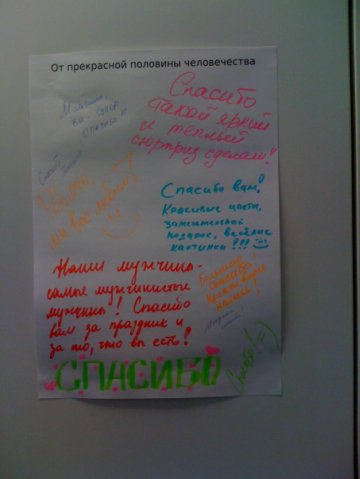 От прекрасной половины человечества
Спасибо
такой яркий
и теплый
сюрприз сделали!
мы вас любим!
Спасибо вам!
Красивые цветы,
замечательный
подарок, весёлые
картинки!!!
Наши мужчины-
самые мужчинистые
мужчины! Спасибо
вам за праздник и
за то, что вы есть!
Большое
спасибо
нашей!
СПАСИБО
Спасибо! =)